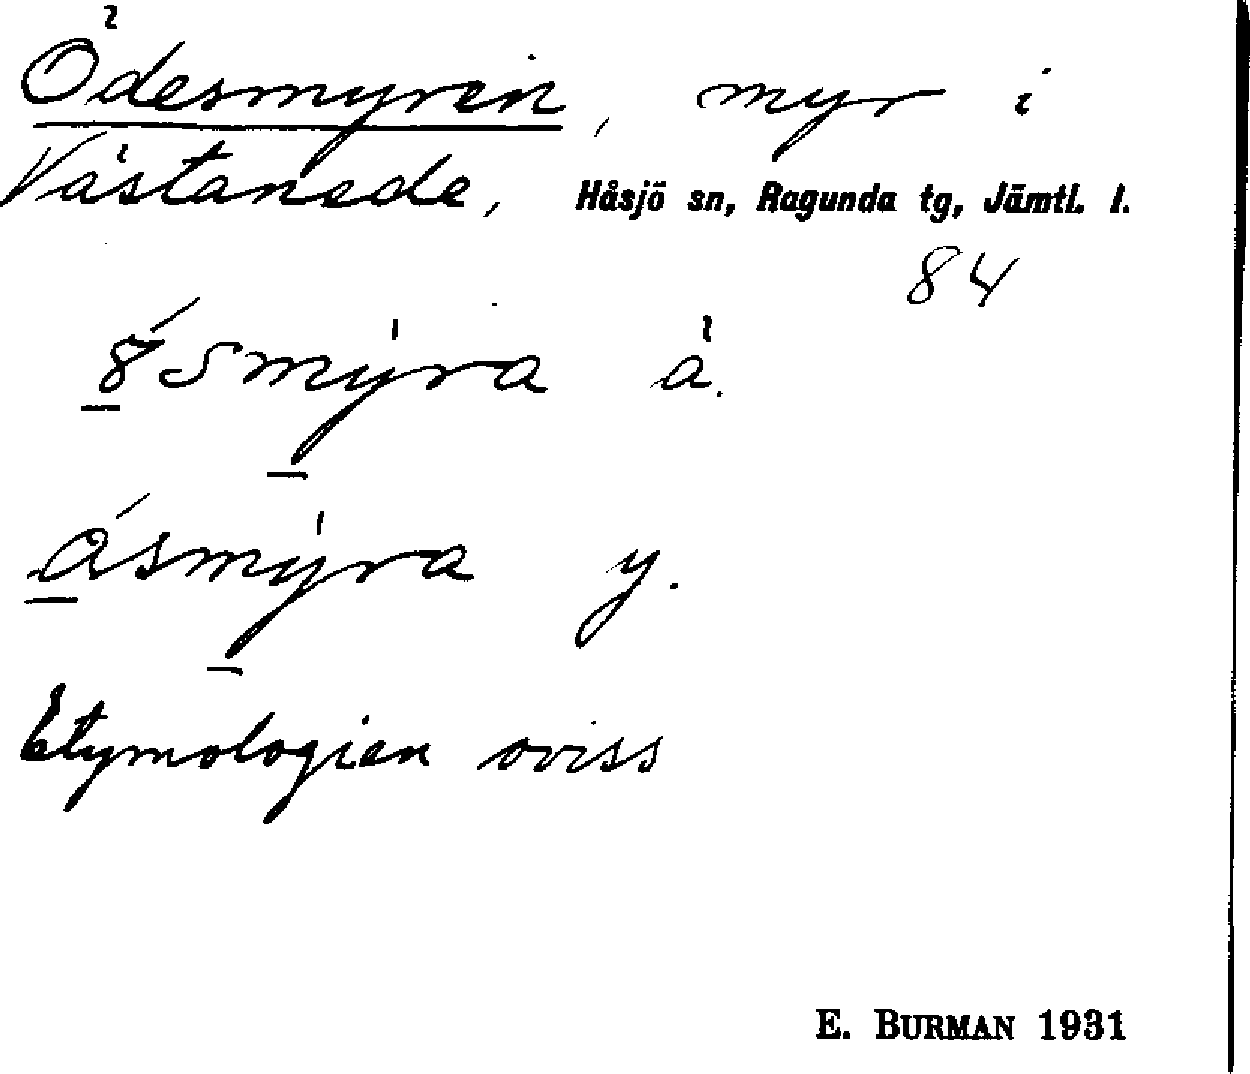 Ödesmyren, myr i
Västanede, Håsjö sn, Ragunda tg, Jämtl. l.
84
ä.
y.
Etymologien oviss
E. BURMAN 1931